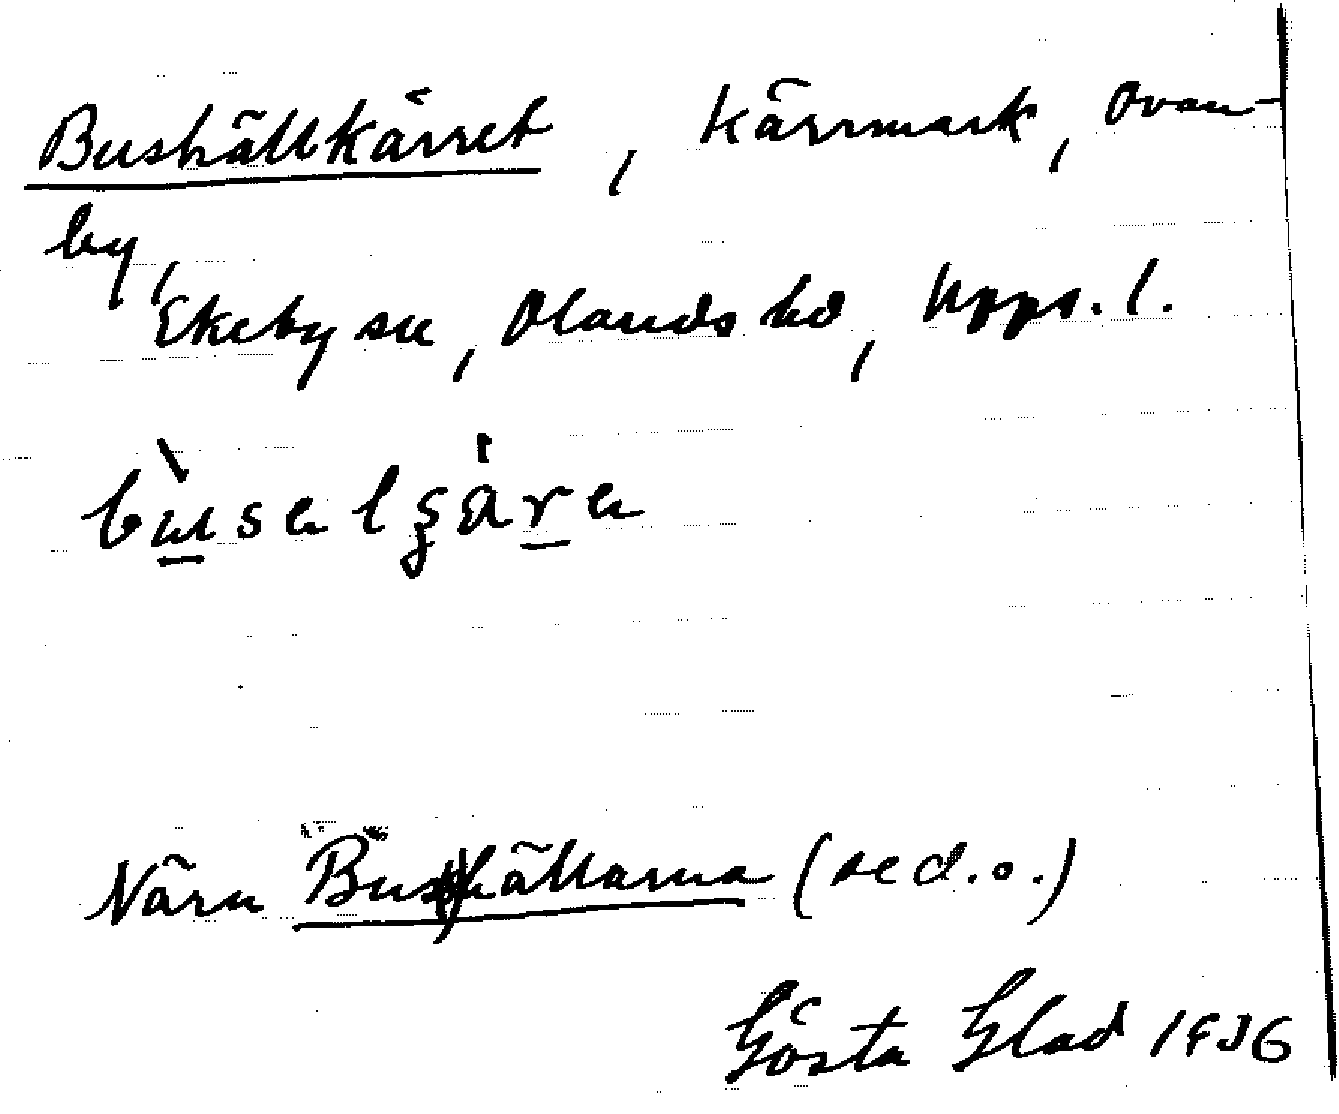 Bushällkärret, Kärrmark, Ovan-
by,
Ekeby sn, Olands hd, Upps. l.
Nära Bushällarna (se d.o.)
Gösta Glad 1936